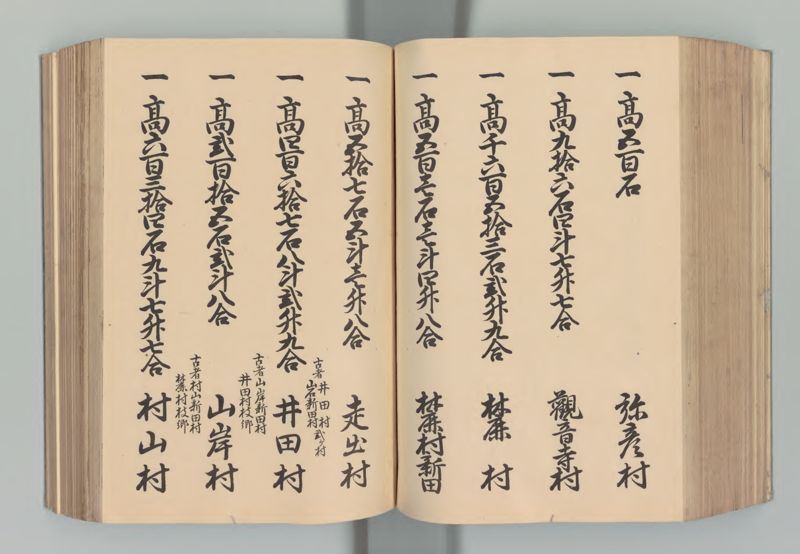 一高五百石 弥彦村
一高九拾六石四斗七升七合 觀音寺村
一高千六百五拾三石弐升九合 麓村
一高五百壱石壱斗四升八合 麓村新田
一高五拾七石五斗壱升八合 走出村
古者井田村
山岩新田村弐ヶ村
一高四百六拾七石八斗弐升九合 井田村
古者山岸新田村
井田村枝郷
一高弐百拾五石弐斗八合 山岸村
古者村山新田村
麓村枝郷
一高六百三拾四石九斗七升七合 村山村